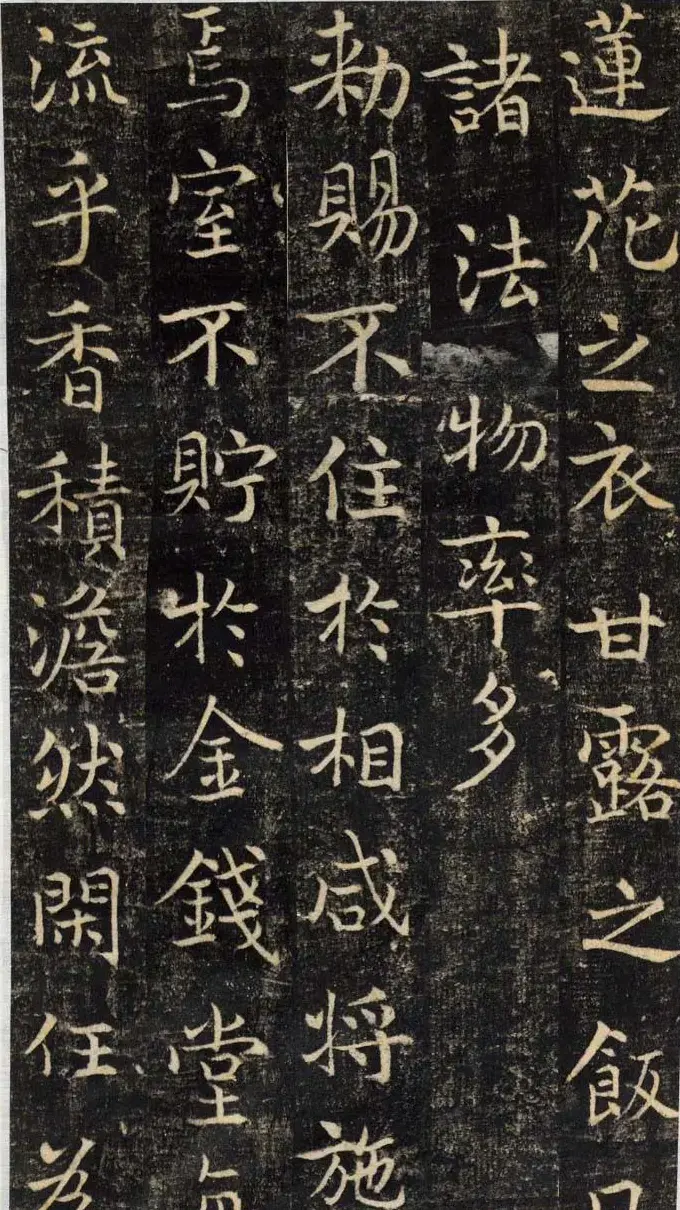 蓮花之衣甘露之飯
諸法物率多
勑賜不住於相咸將施
焉室不貯於金錢堂
流乎香積澹然閑任